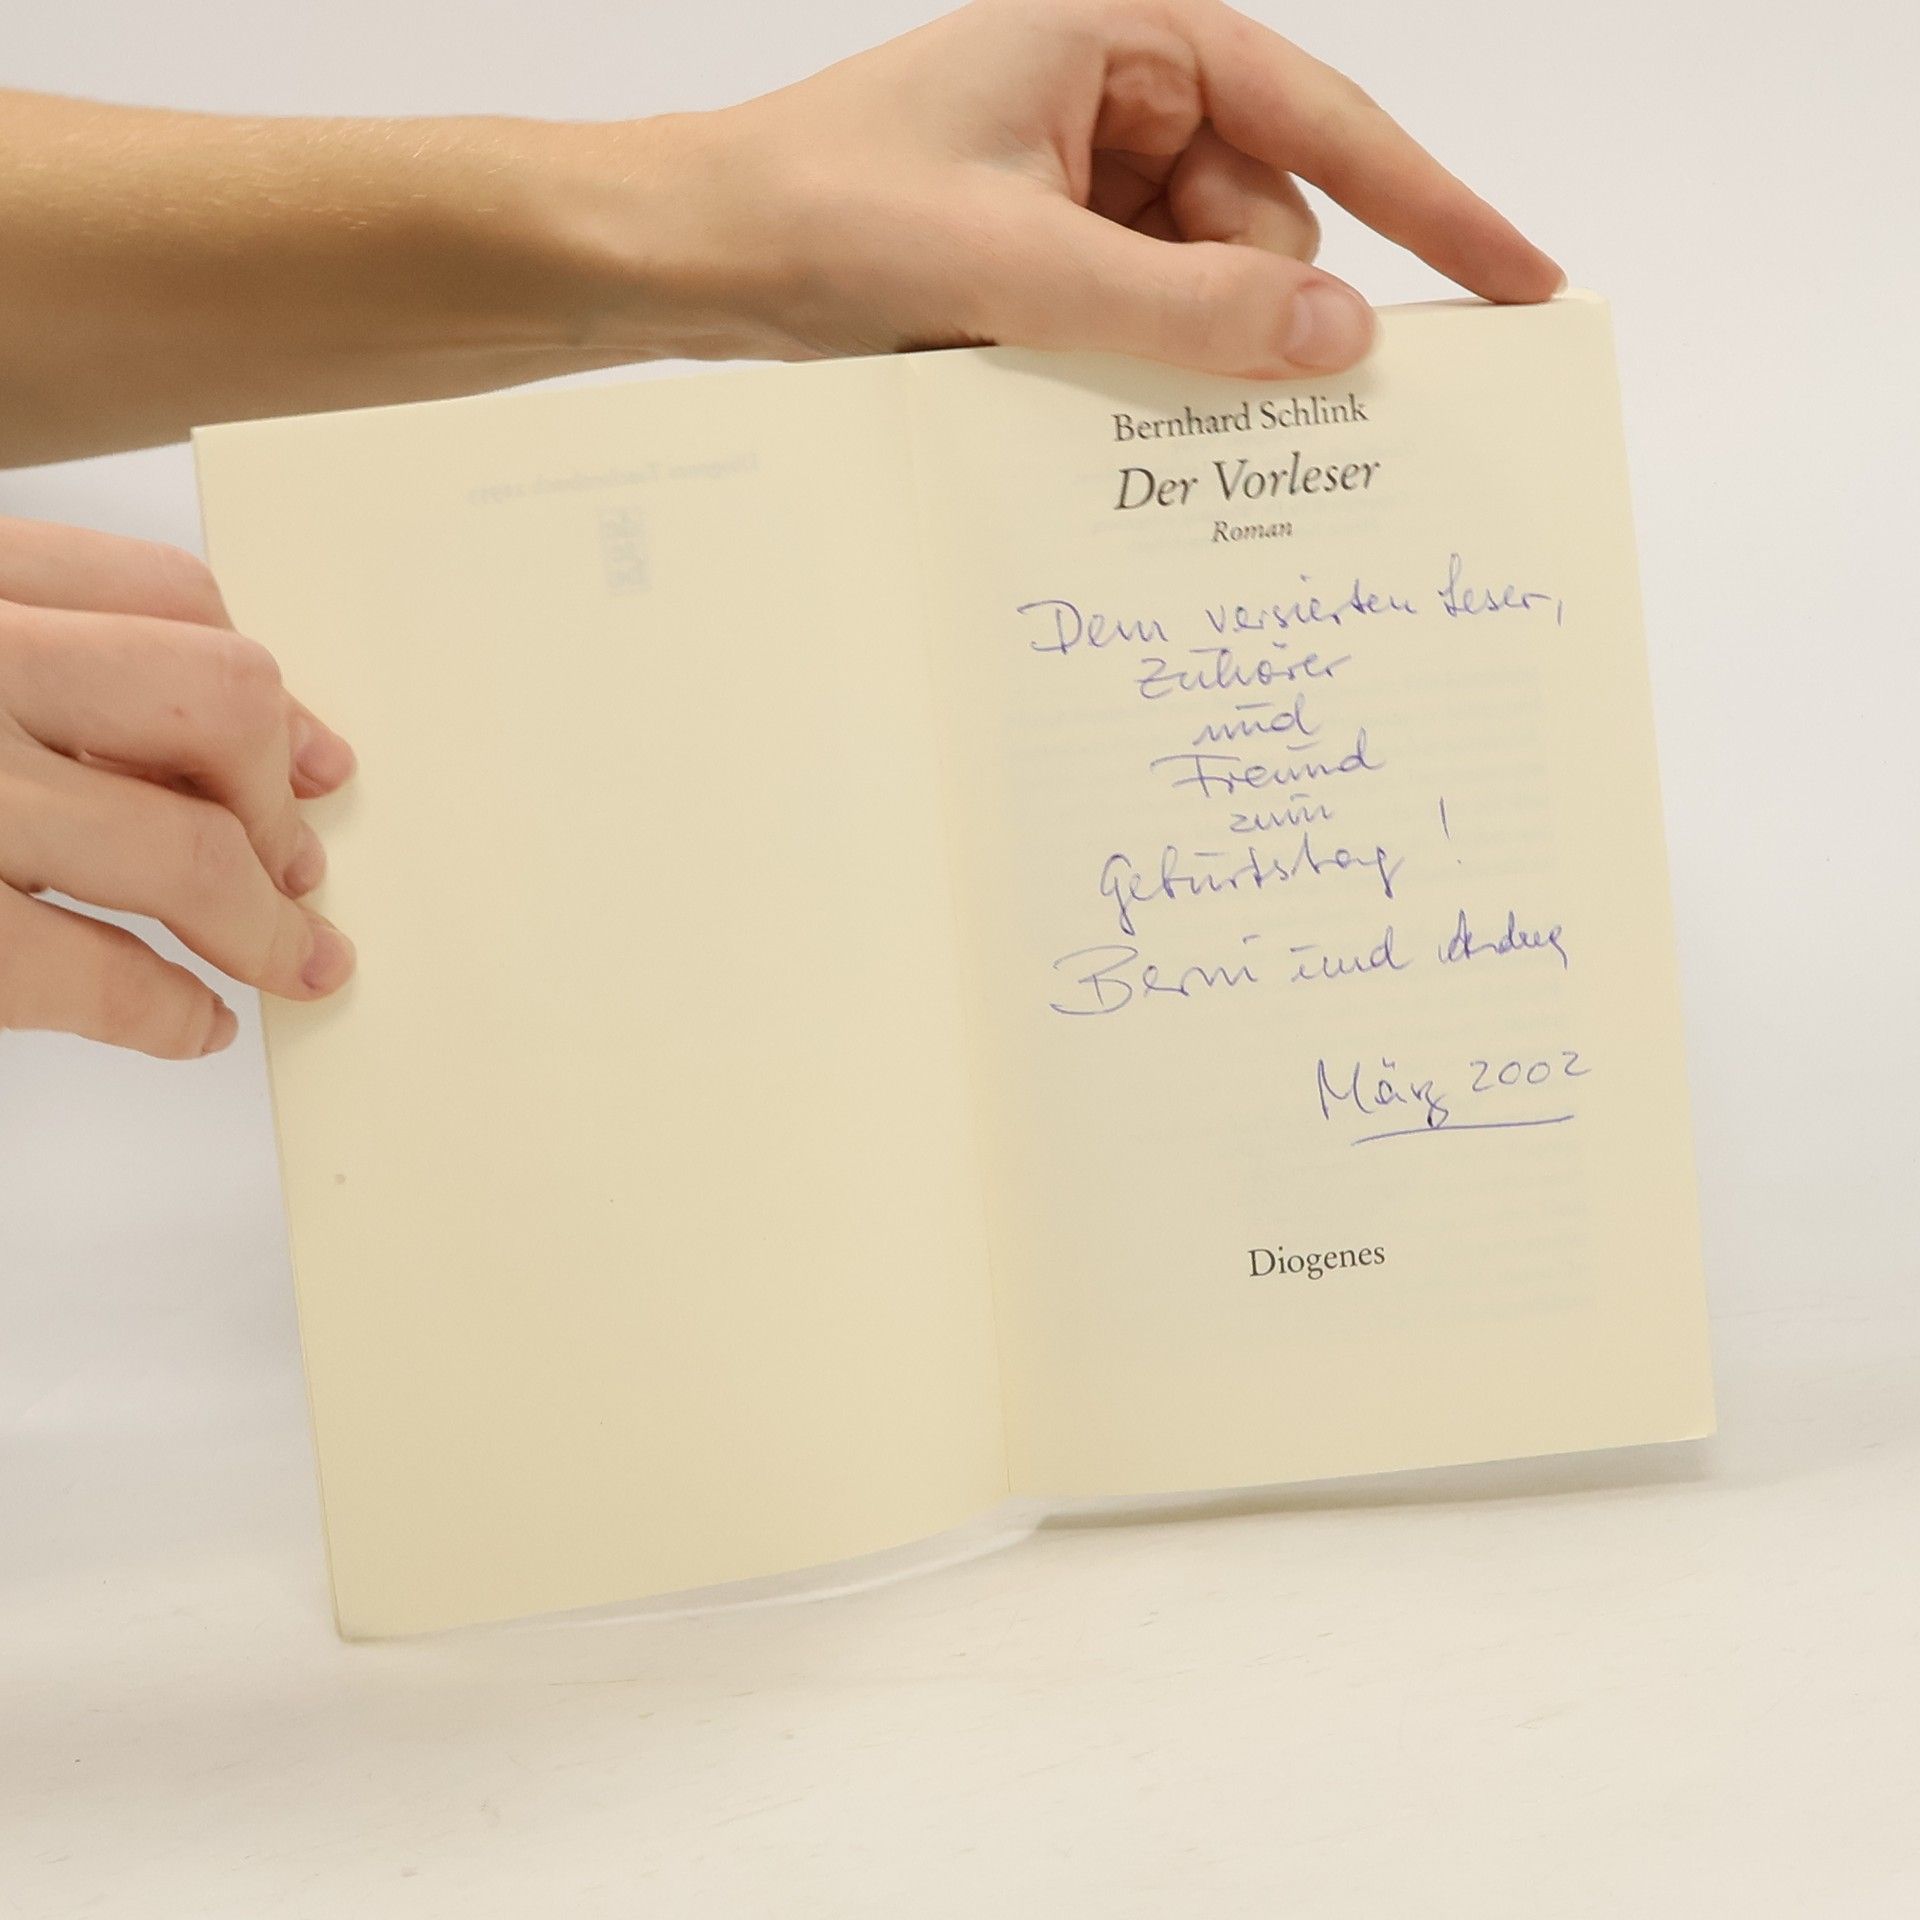 Bernhard Schlink
Der Vorleser
Roman
Dem versierten Leser,
Zuhörer
und
Freund
zum
Geburtstag !
Berni und
März 2002
Diogenes